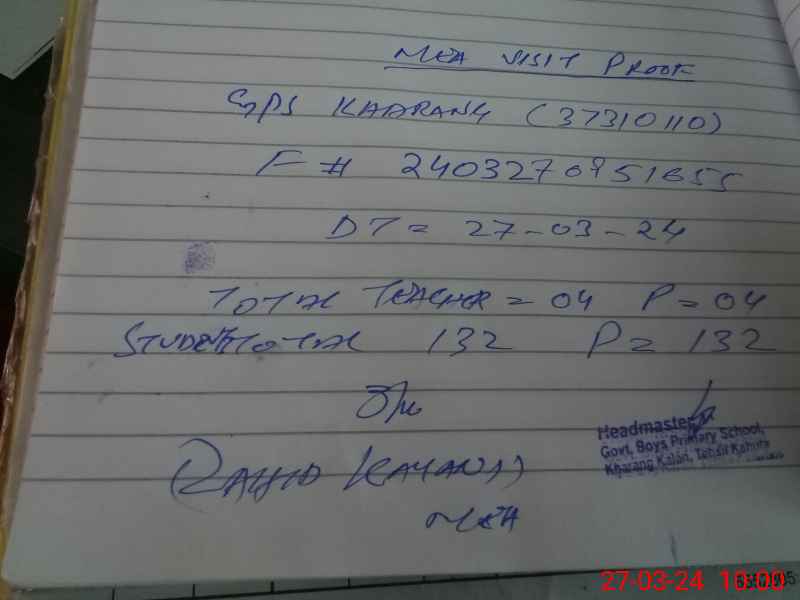 MEA VISIT PROOF
GPS KHARANG (37310110)
F # 2403270951655
DT = 27-03-24
TOTAL TEACHER = 04 P = 04
STUDENT TOTAL 132 P = 132
Headmaster
Govt. Boys Primary School,
Kharang Kalan, Tehsil Kahuta
MEA
27-03-24 10:00